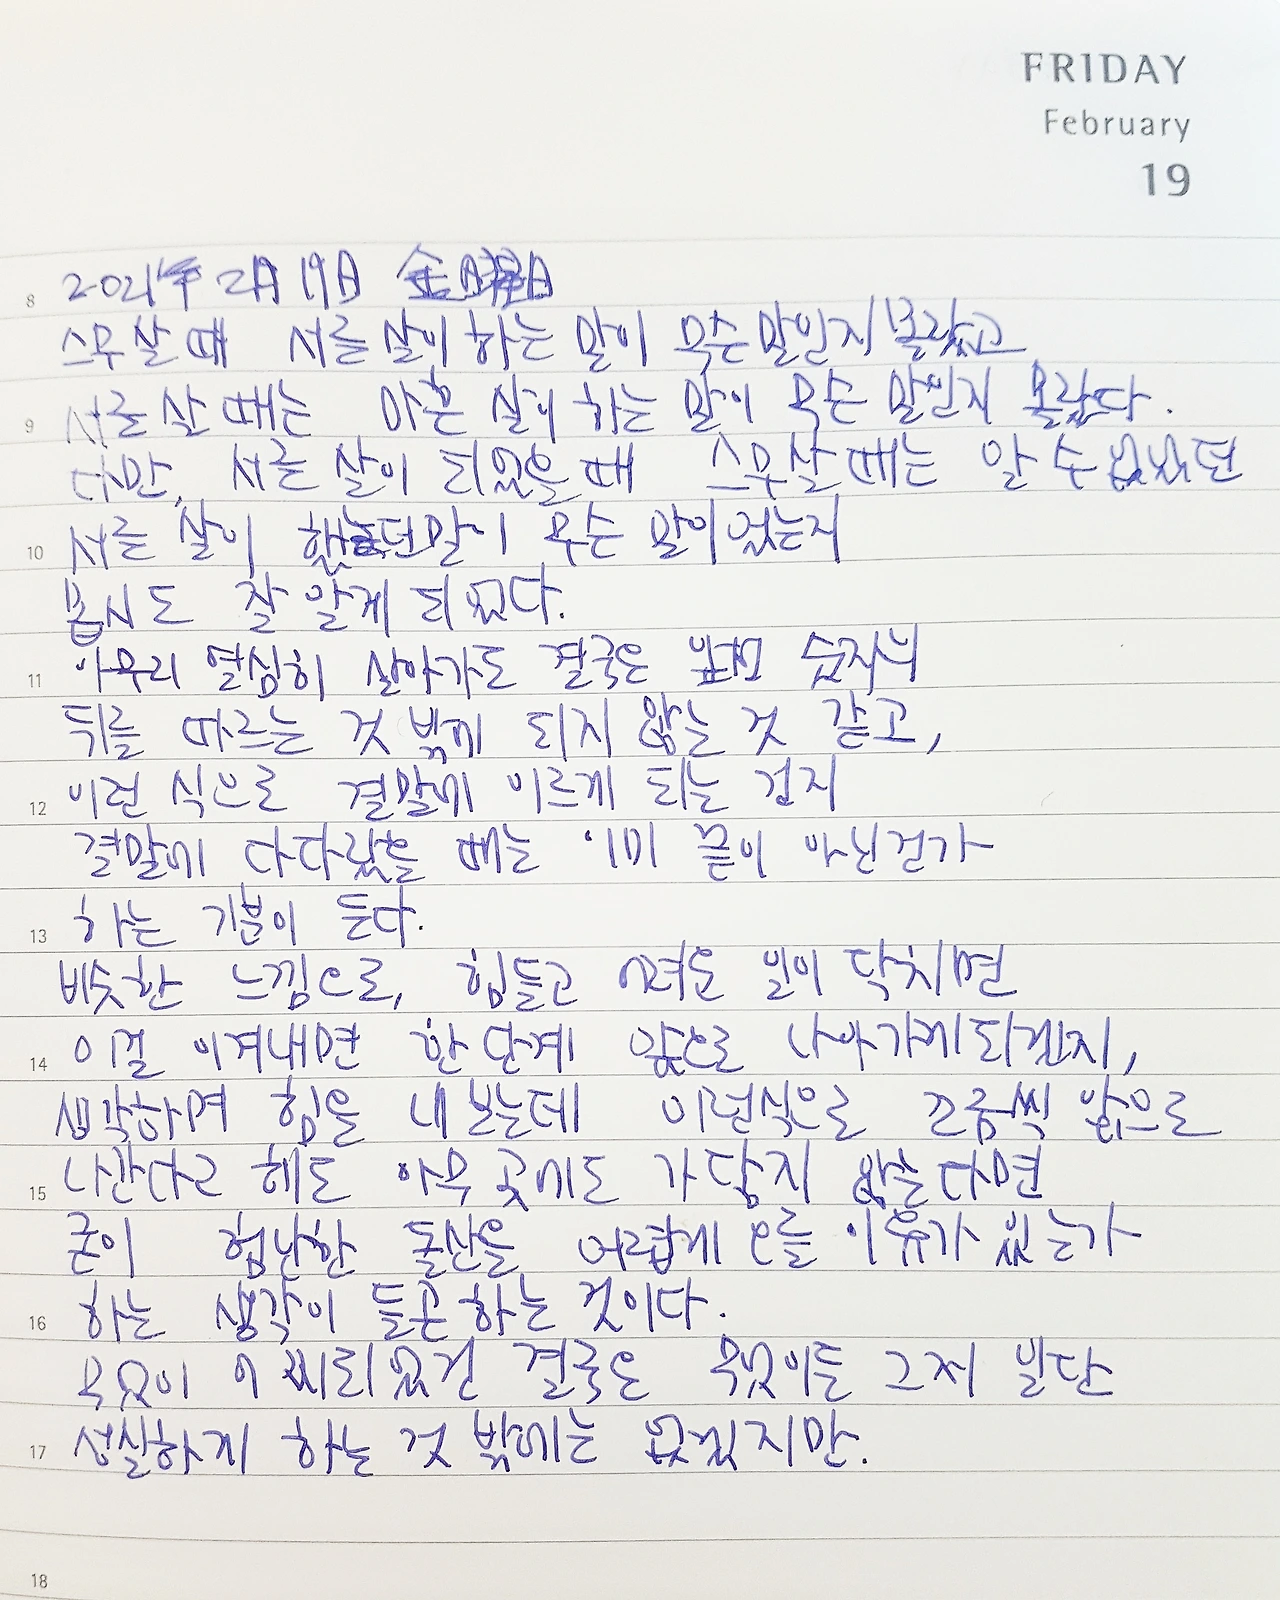 FRIDAY
February
19
8 2021年 2月 19日 金曜日
스무살 때 서른 살이 하는 말이 무슨 말인지 몰랐고
9 서른 살 때는 마흔 살이 하는 말이 무슨 말인지 몰랐다.
다만, 서른 살이 되었을 때 스무살 때는 알 수 없었던
10 서른 살이 했던 말이 무슨 말이었는지
몹시도 잘 알게 되었다.
11 아무리 열심히 살아가도 결국은 표면 습자늬
뒤를 따르는 것 밖에 되지 않는 것 같고,
12 이런 식으로 결말에 이르게 되는 건지
결말에 다다랐을 때는 이미 끝이 아닌건가
13 하는 기분이 든다.
비슷한 느낌으로, 힘들고 어려운 일이 닥치면
14 이걸 이겨내면 한 단계 앞으로 나아가게 되겠지,
생각하며 힘을 내 보는데 이런식으로 조금씩 앞으로
15 나간다고 해도 아무 곳에도 가 닿지 않는다면
굳이 험난한 돌산을 어렵게 오를 이유가 있는가
16 하는 생각이 들곤 하는 것이다.
무엇이 어찌되었건 결국은 무엇이든 그저 일단
17 성실하게 하는 것 밖에는 없겠지만.
18